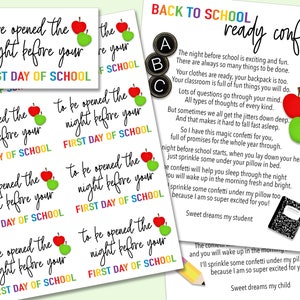 be opened the
night before your
FIRST DAY OF SCHOOL
to be opened the
night before your
FIRST DAY OF SCHOOL
to be opened the
night before your
FIRST DAY OF SCHOOL
to be opened the
night before your
FIRST DAY OF SCHOOL
to be opened the
night before your
FIRST DAY OF SCHOOL
BACK TO SCHOOL
ready confe
A
B
C
The night before school is exciting and fun.
There are always so many things to be done.
Your clothes are ready, your backpack is too.
Your classroom is full of fun things you will do.
Lots of questions go through your mind
All types of thoughts of every kind.
But sometimes we all get the jitters down deep
And that makes it hard to fall fast asleep.
So I have this magic confetti for you,
full of promises for the whole year through.
night before school starts, when you lay down your he
just sprinkle some under your pillow in bed.
confetti will help you sleep through the night
you will wake up in the morning fresh and bright.
sprinkle some confetti under my pillow too,
because I am so super excited for you!
Sweet dreams my student
and you will wake up in the morning
I'll sprinkle some confetti under my pillow
because I am so super excited for
Sweet dreams my child